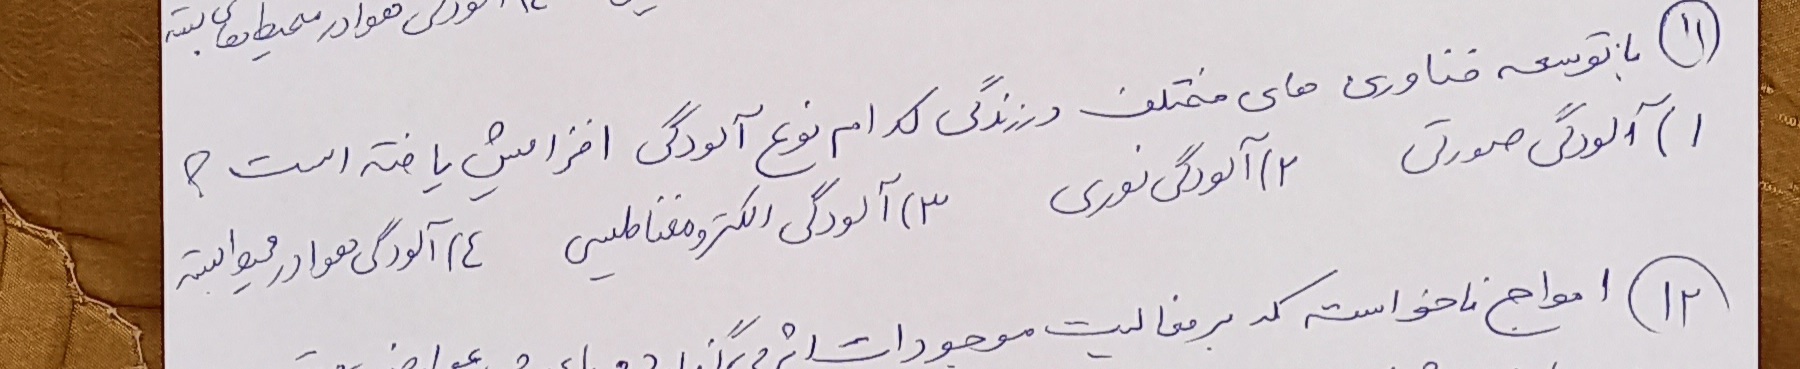 آلودگی هوا در محیط های بسته
۱۱ با توسعه فناوری های مختلف در زندگی کدام نوع آلودگی افزایش یافته است ؟
۱) آلودگی صورتی ۲) آلودگی نوری ۳) آلودگی الکترومغناطیسی ٤) آلودگی هوا در محیط بسته
۱۲ امواج ناخواسته که بر فعالیت موجودات اثر می گذارد و